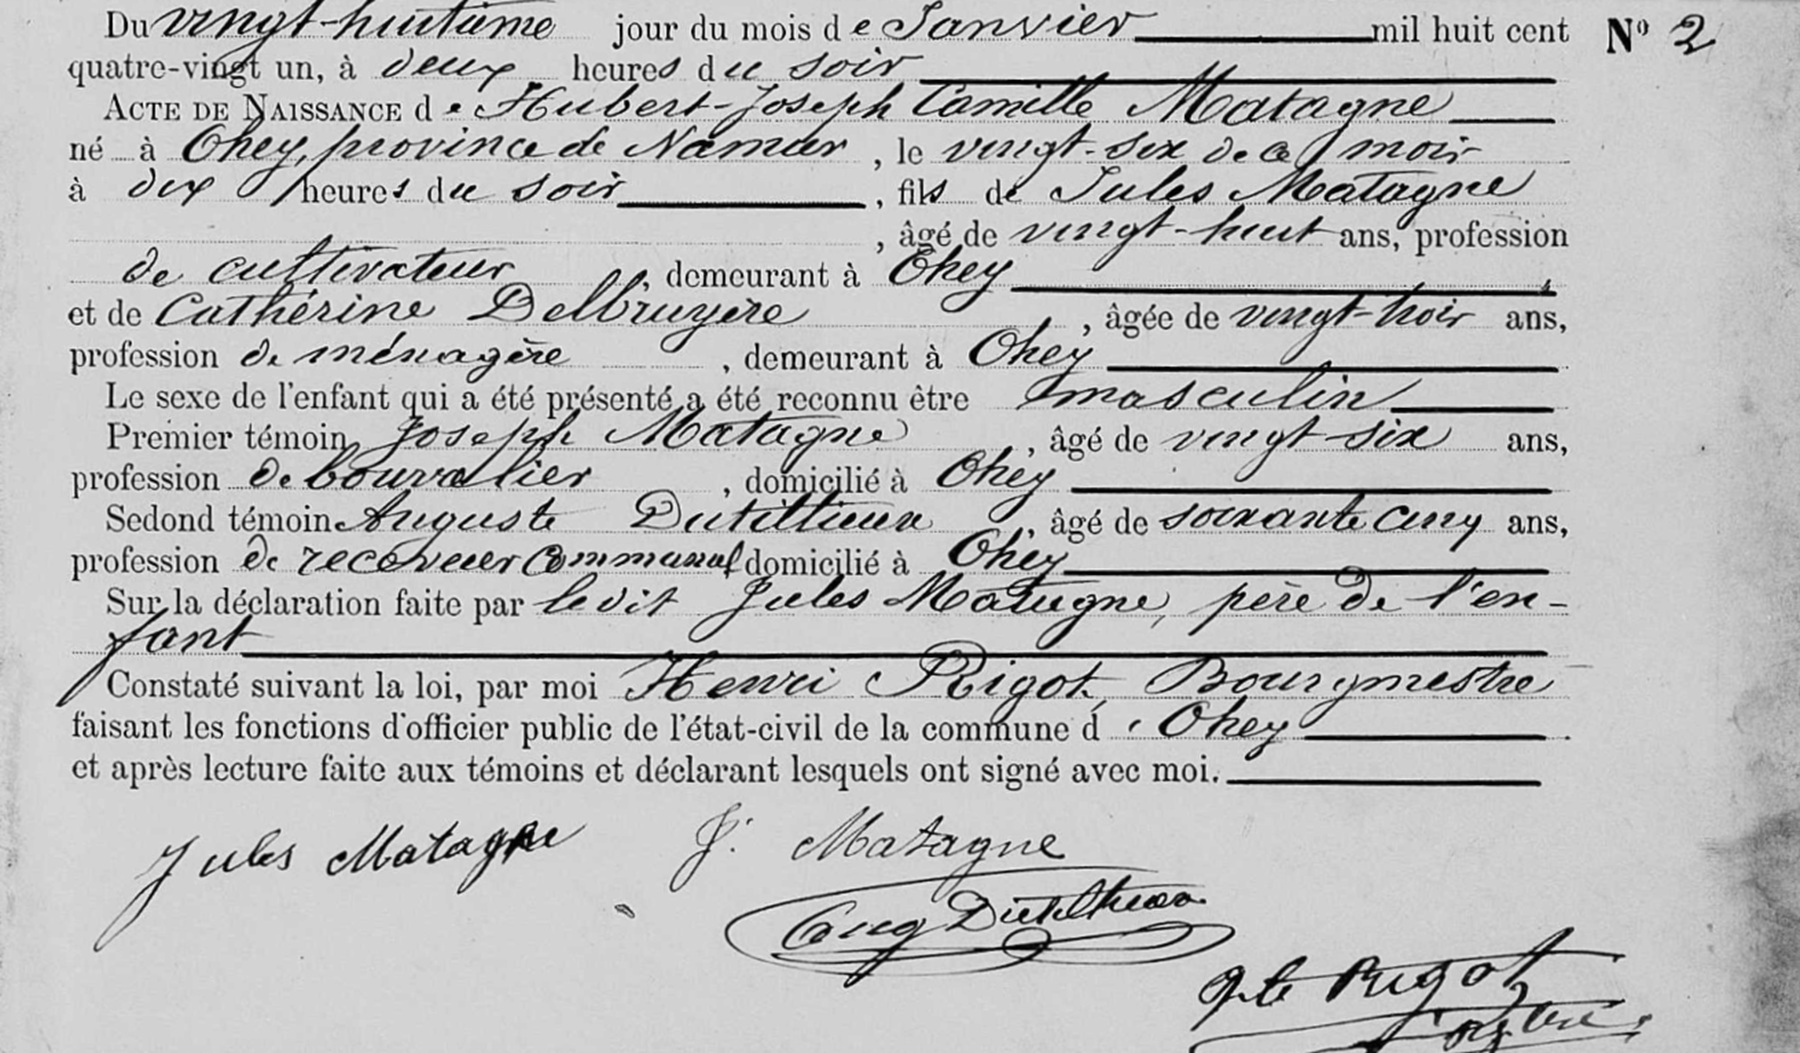 Du vingt-huitième jour du mois de Janvier mil huit cent Nº 2
quatre-vingt un, à deux heures du soir
ACTE DE NAISSANCE de Hubert-Joseph Camille Matagne
né à Ohey, province de Namur, le vingt-six de ce mois
à dix heures du soir, fils de Jules Matagne
, âgé de vingt-huit ans, profession
de cultivateur, demeurant à Ohey,
et de Cathérine Delbruyère, âgée de vingt-trois ans,
profession de ménagère, demeurant à Ohey
Le sexe de l'enfant qui a été présenté a été reconnu être masculin
Premier témoin Joseph Matagne, âgé de vingt six ans,
profession de bourrelier, domicilié à Ohey
Sedond témoin Auguste Dutillieux, âgé de soixante cinq ans,
profession de receveur communal domicilié à Ohey
Sur la déclaration faite par le dit Jules Matagne, père de l'en-
fant
Constaté suivant la loi, par moi Henri Rigot, Bourgmestre
faisant les fonctions d'officier public de l'état-civil de la commune d'Ohey
et après lecture faite aux témoins et déclarant lesquels ont signé avec moi.
Jules Matagne J. Matagne
Aug Dutillieux
Rigot